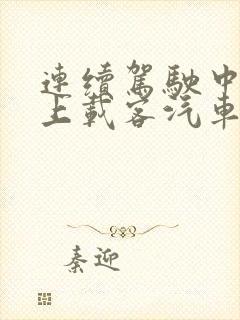 連續駕駛中
上載客汽車
秦迎